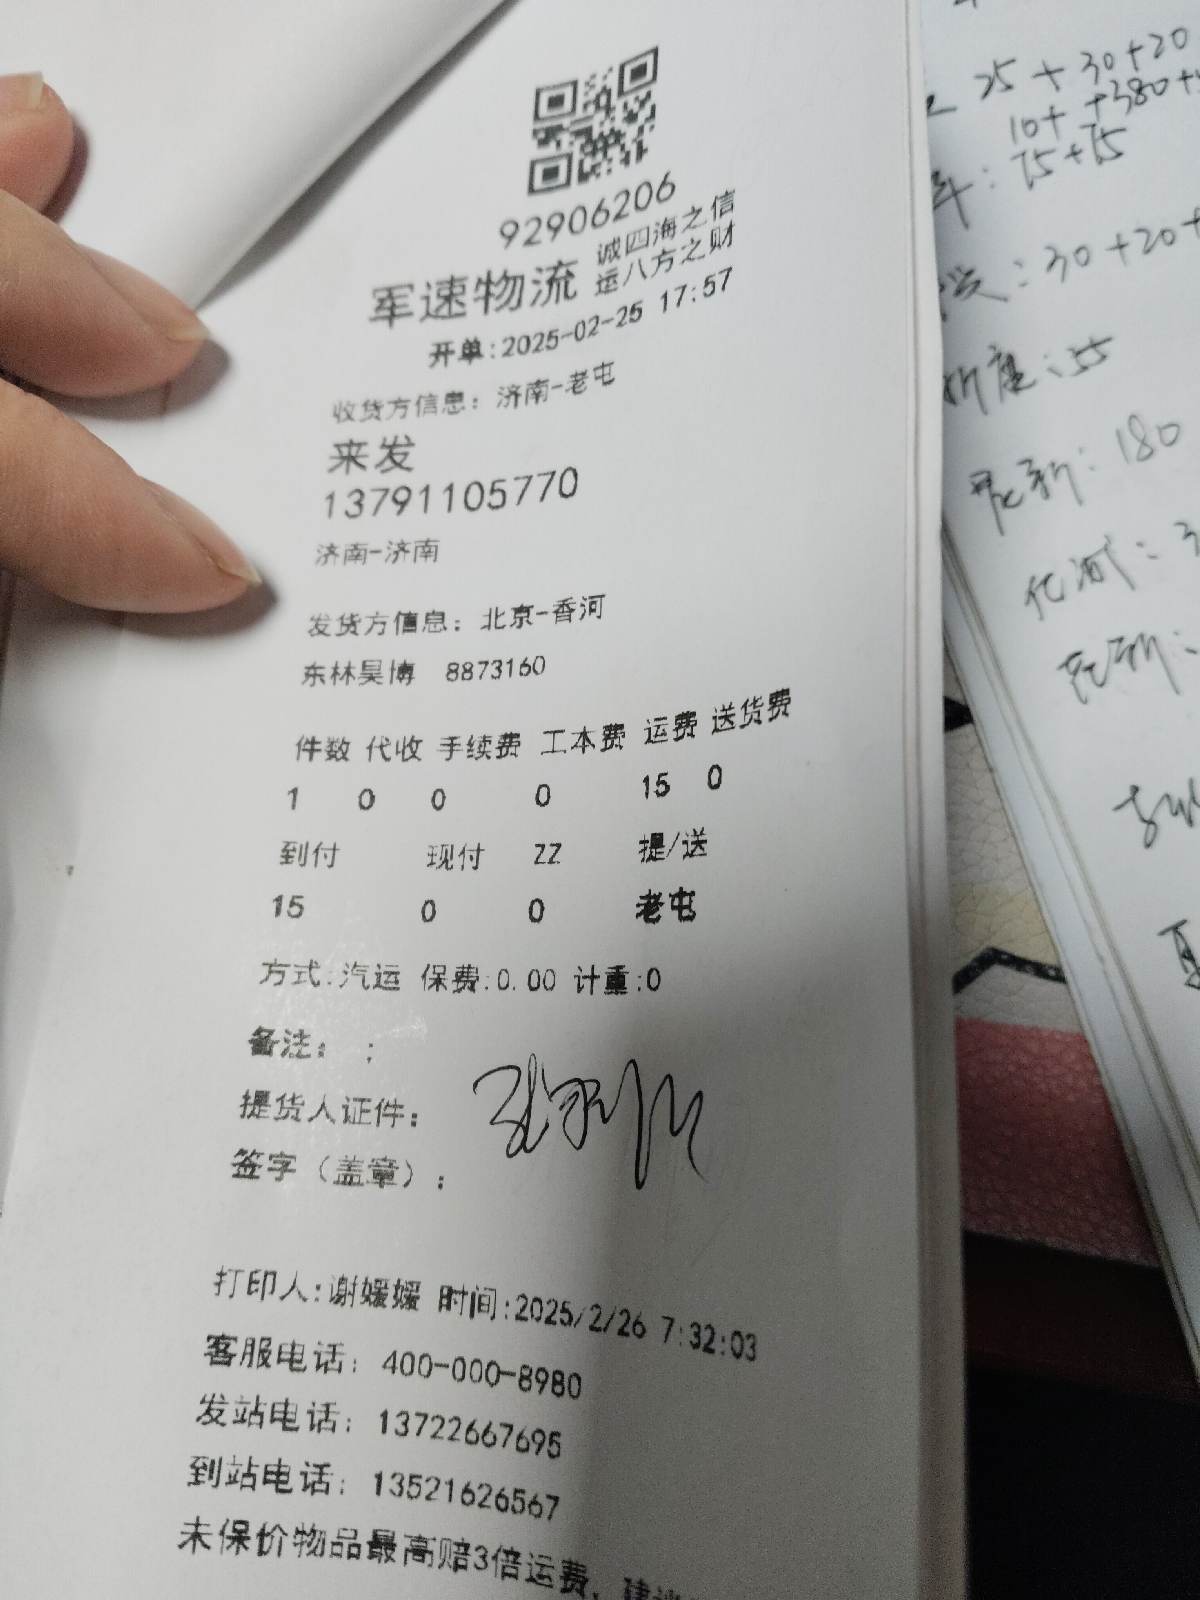 92906206
军速物流 诚四海之信
运八方之财
开单:2025-02-25 17:57
收货方信息：济南-老屯
来发
13791105770
济南-济南
发货方信息：北京-香河
东林昊博 8873160
件数 代收 手续费 工本费 运费 送货费
1 0 0 0 15 0
到付 现付 ZZ 提/送
15 0 0 老屯
方式:汽运 保费:0.00 计重:0
备注： ;
提货人证件：
签字（盖章）：
打印人:谢媛媛 时间:2025/2/26 7:32:03
客服电话：400-000-8980
发站电话：13722667695
到站电话：13521626567
未保价物品最高赔3倍运费，建议
25+30+20
10+ +380+
75+75
：30+20+
：55
：180